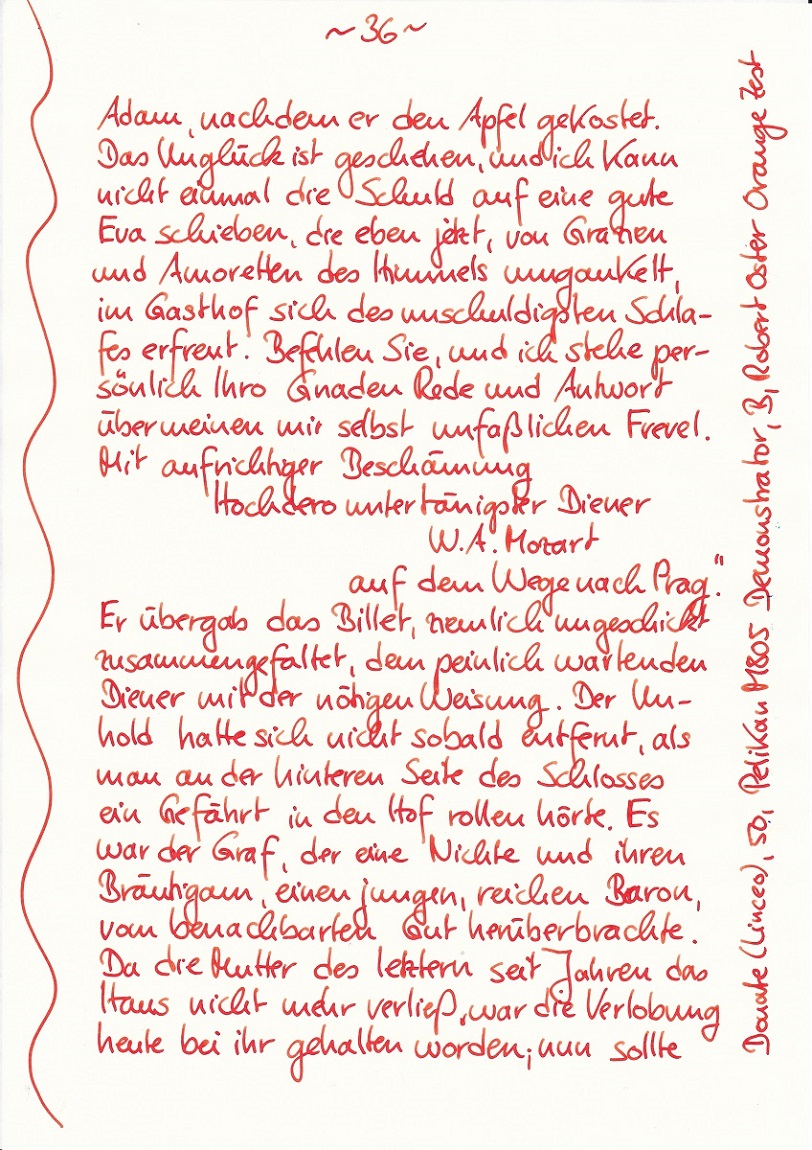 ~36~
Adam, nachdem er den Apfel gekostet.
Das Unglück ist geschehen, und ich kann
nicht einmal die Schuld auf eine gute
Eva schieben, die eben jetzt, von Grazien
und Amoretten des Himmels umgaukelt,
im Gasthof sich des unschuldigsten Schla-
fes erfreut. Befehlen Sie, und ich stehe per-
sönlich Ihro Gnaden Rede und Antwort
über meinen mir selbst unfaßlichen Frevel.
Mit aufrichtiger Beschämung
Hochdero untertänigster Diener
W.A. Mozart
auf dem Wege nach Prag."
Er übergab das Billet, ziemlich ungeschickt
zusammengefaltet, dem peinlich wartenden
Diener mit der nötigen Weisung. Der Un-
hold hatte sich nicht sobald entfernt, als
man an der hinteren Seite des Schlosses
ein Gefährt in den Hof rollen hörte. Es
war der Graf, der eine Nichte und ihren
Bräutigam, einen jungen, reichen Baron,
vom benachbarten Gut herüberbrachte.
Da die Mutter des letztern seit Jahren das
Haus nicht mehr verließ, war die Verlobung
heute bei ihr gehalten worden; nun sollte
Donate (Linceo), 50, Pelikan M805 Demonstrator, B, Robert Oster Orange Zest